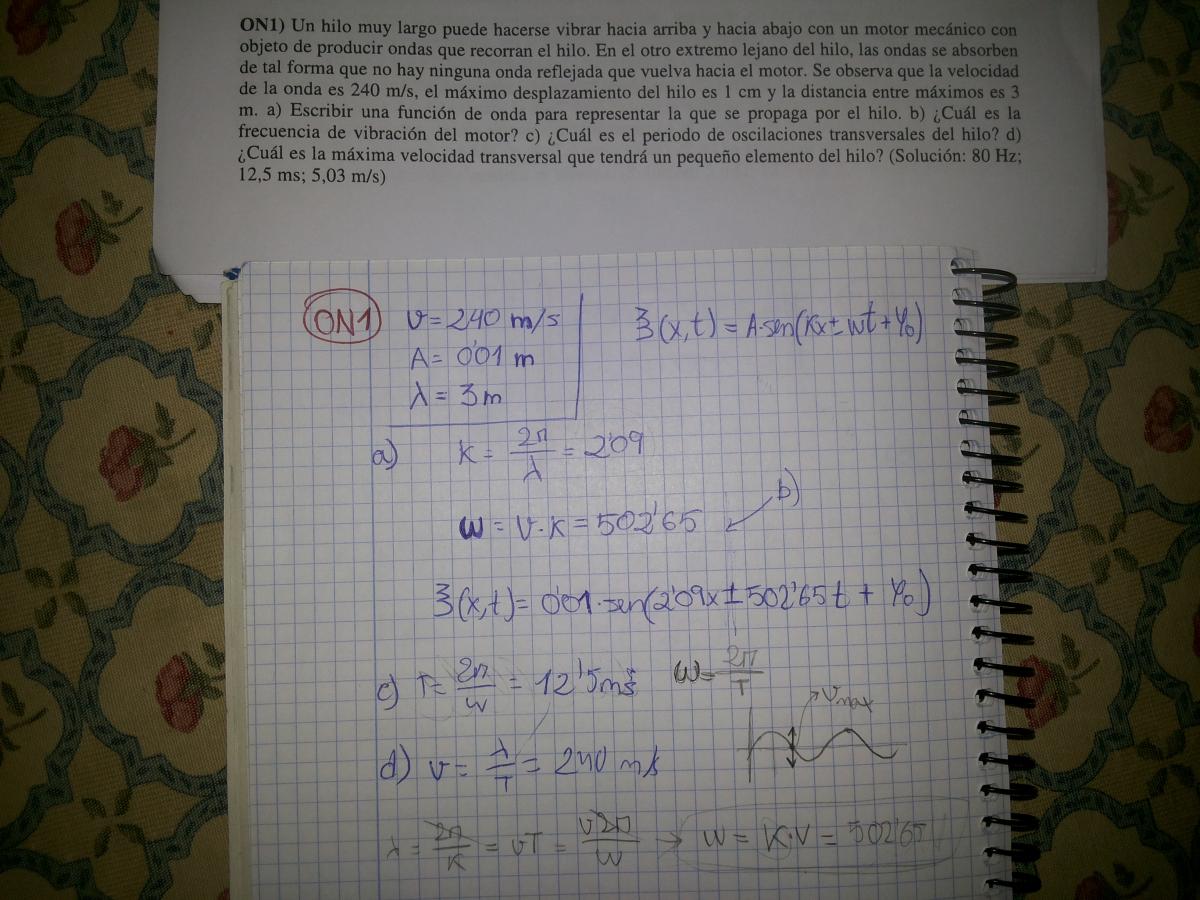 ON1) Un hilo muy largo puede hacerse vibrar hacia arriba y hacia abajo con un motor mecánico con
objeto de producir ondas que recorran el hilo. En el otro extremo lejano del hilo, las ondas se absorben
de tal forma que no hay ninguna onda reflejada que vuelva hacia el motor. Se observa que la velocidad
de la onda es 240 m/s, el máximo desplazamiento del hilo es 1 cm y la distancia entre máximos es 3
m. a) Escribir una función de onda para representar la que se propaga por el hilo. b) ¿Cuál es la
frecuencia de vibración del motor? c) ¿Cuál es el periodo de oscilaciones transversales del hilo? d)
¿Cuál es la máxima velocidad transversal que tendrá un pequeño elemento del hilo? (Solución: 80 Hz;
12,5 ms; 5,03 m/s)
ON1
v = 240 m/s
A = 0'01 m
λ = 3 m
ξ(x,t) = A·sen(Kx ± wt + φ₀)
a) K = 2π/λ = 2'09
w = v·K = 502'65
b)
ξ(x,t) = 0'01·sen(2'09x ± 502'65t + φ₀)
c) T = 2π/w = 12'5 ms
w = 2π/T
Vmax
d) v = λ/T = 240 m/s
λ = 2π/K = vT = v2π/w → w = K·v = 502'65